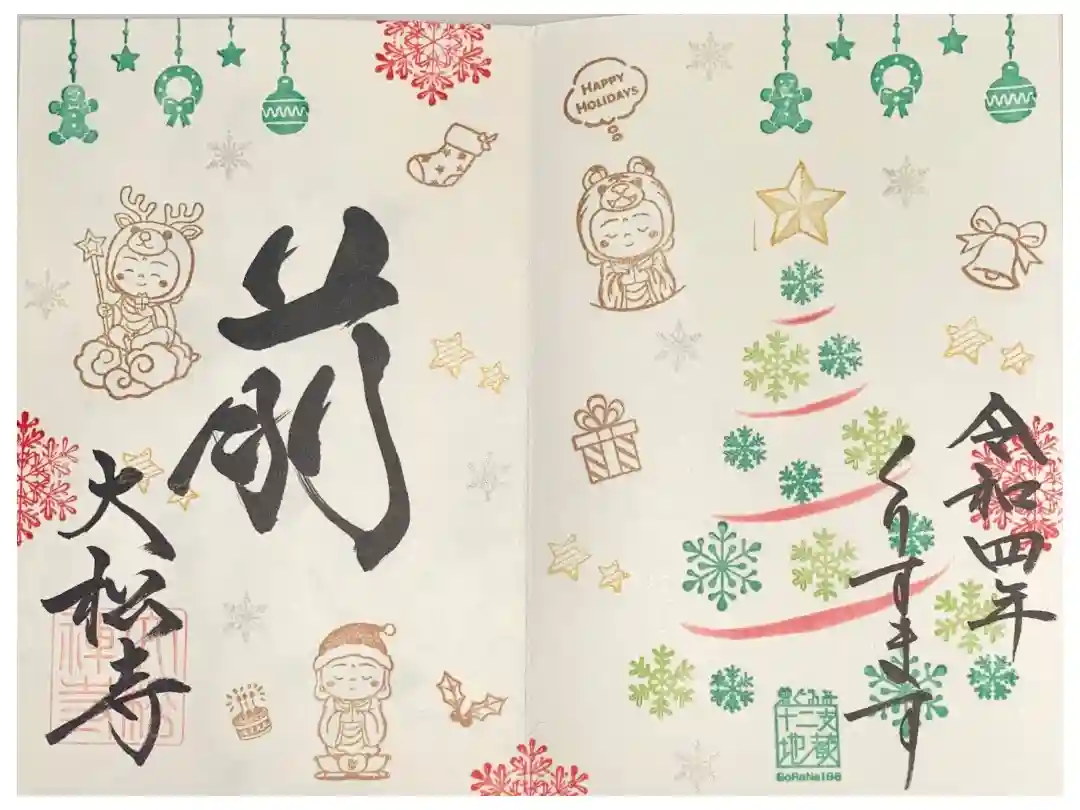 HAPPY
HOLIDAYS
令和四年
くりすます
着ぐるみ
十二支
地蔵
大松寺